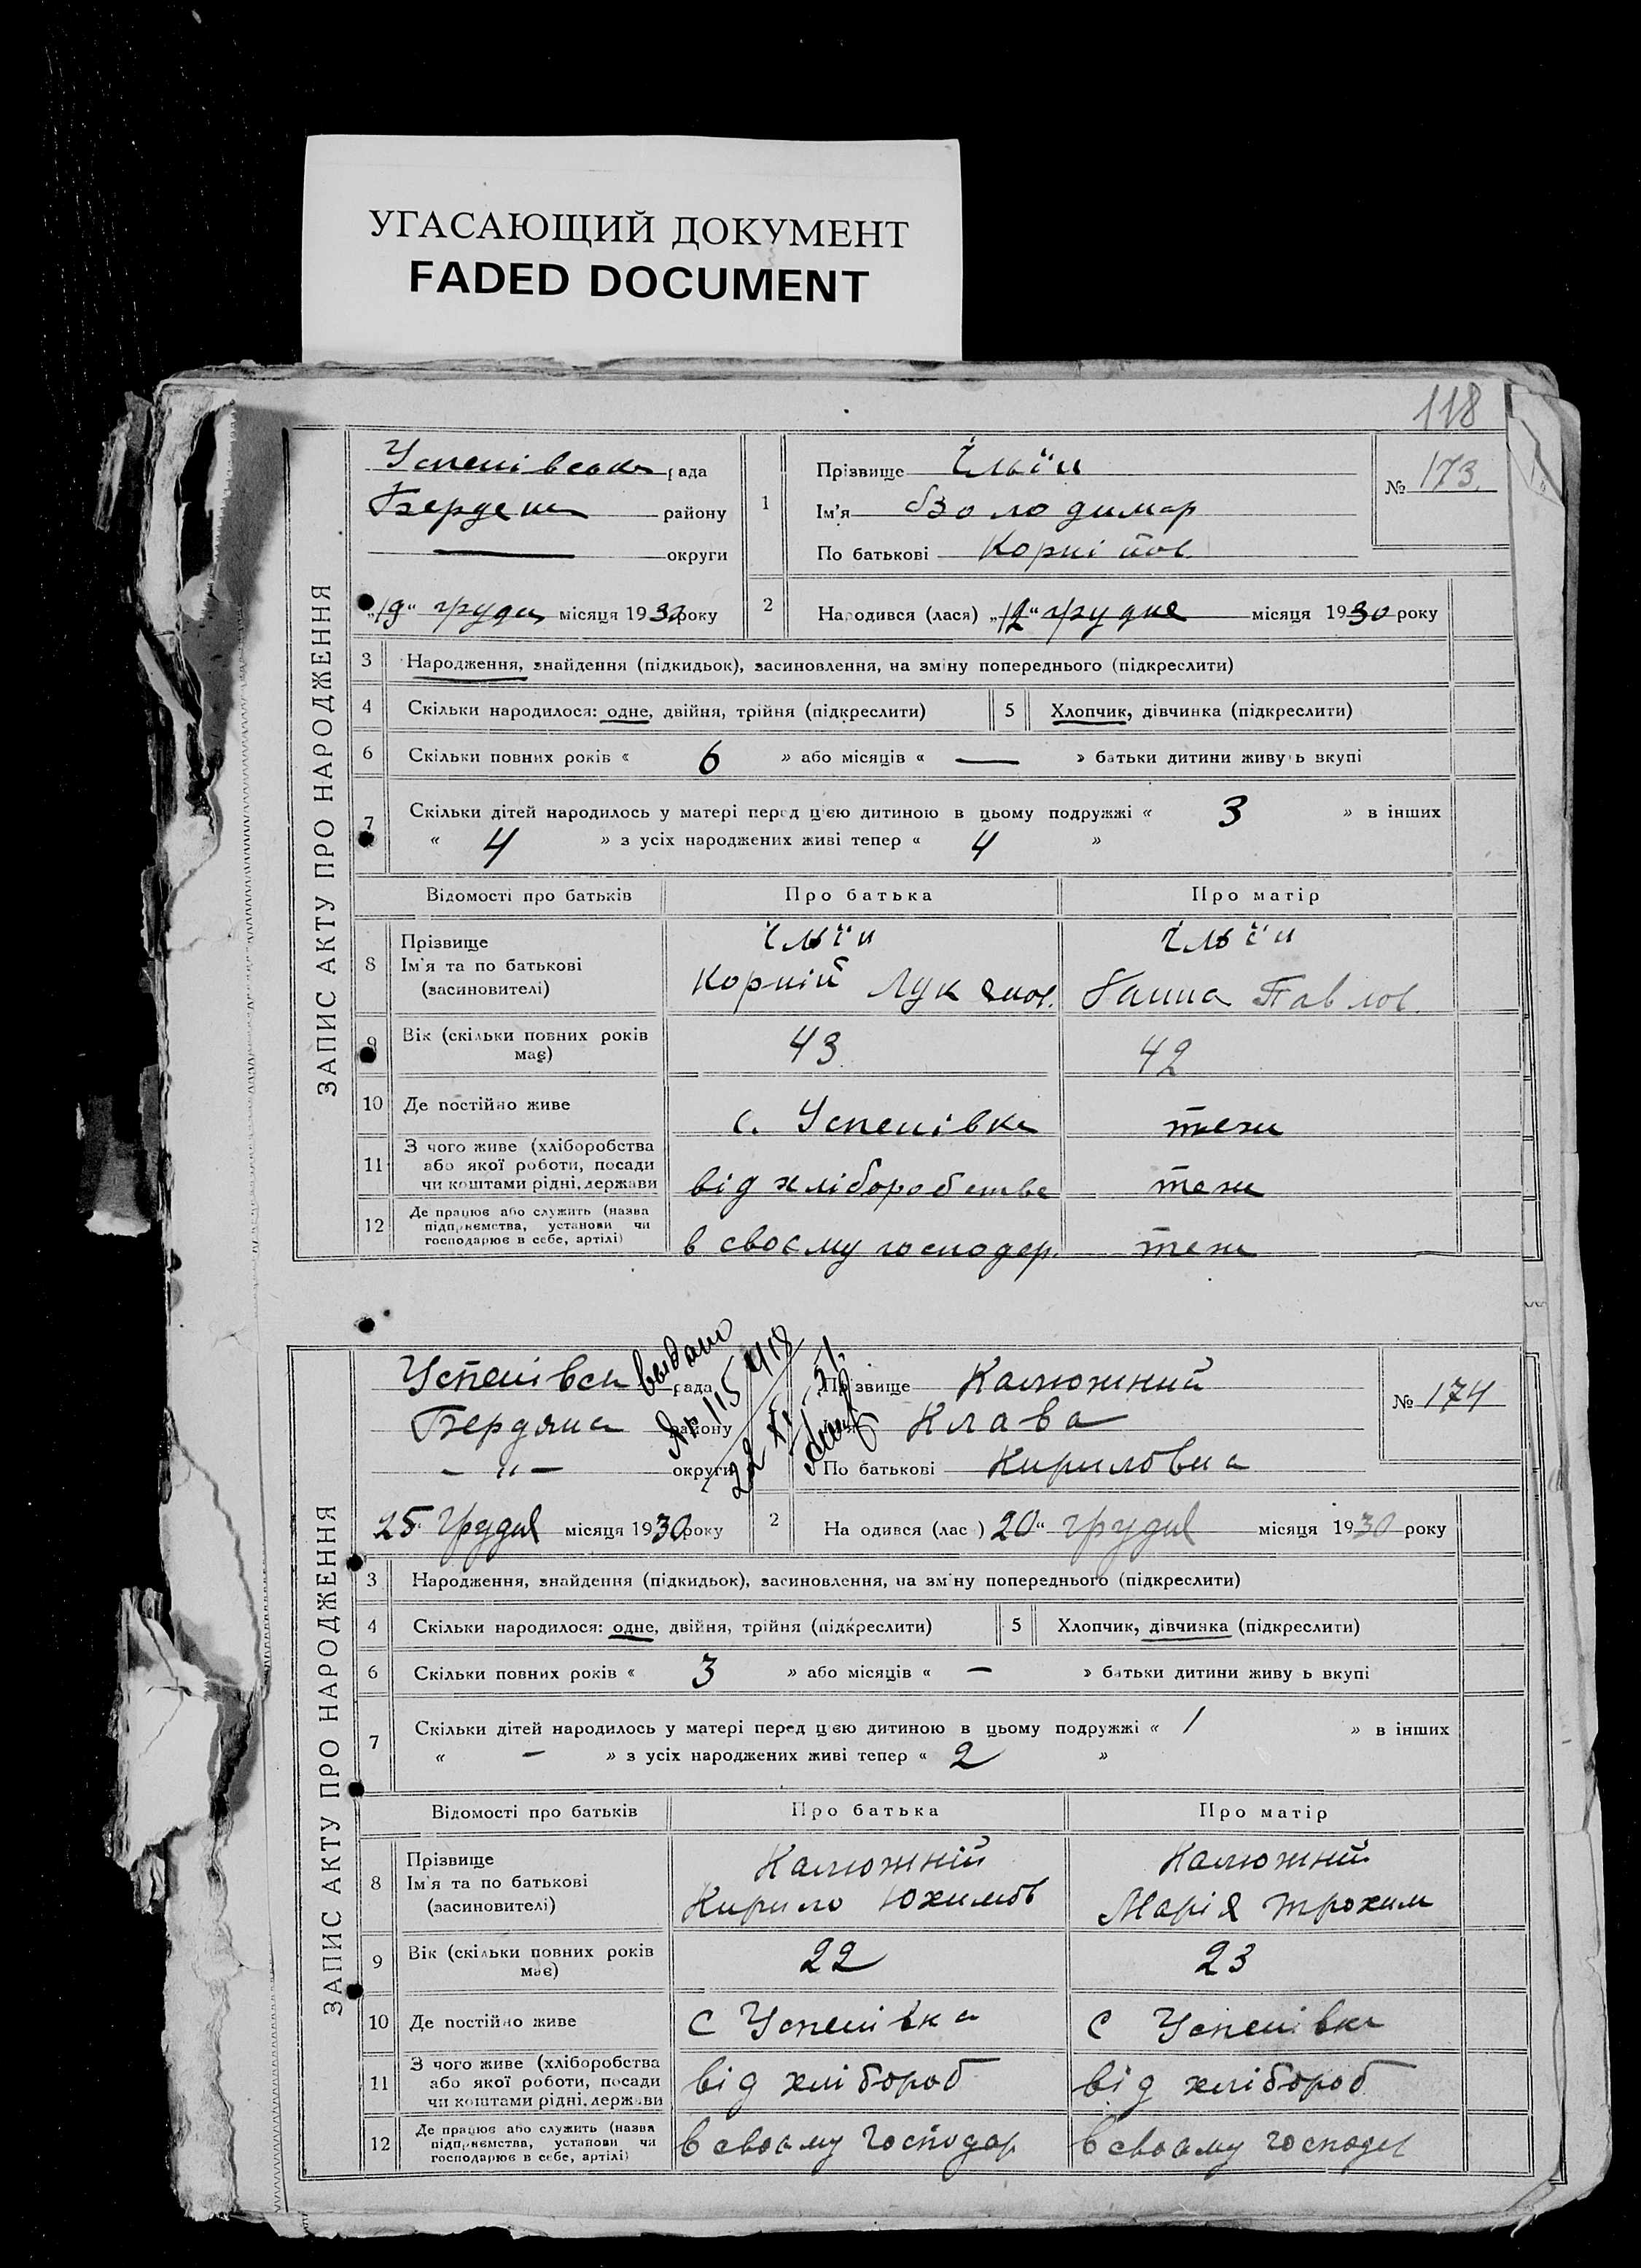 УГАСАЮЩИЙ ДОКУМЕНТ
FADED DOCUMENT
118
ЗАПИС АКТУ ПРО НАРОДЖЕННЯ
Успенівська рада
Бердян району
округи
„19“ грудн місяця 1930 року
1
Прізвище Ільїн
Ім'я Володимир
По батькові Корнійов.
№ 173.
2
Народився (лася) „12“ грудня місяця 1930 року
3 Народження, знайдення (підкидьок), засиновлення, на зміну попереднього (підкреслити)
4 Скільки народилося: одне, двійня, трійня (підкреслити) 5 Хлопчик, дівчинка (підкреслити)
6 Скільки повних років « 6 » або місяців « — » батьки дитини живуть вкупі
7 Скільки дітей народилось у матері перед цією дитиною в цьому подружжі « 3 » в інших
« 4 » з усіх народжених живі тепер « 4 »
Відомості про батьків Про батька Про матір
8 Прізвище Ільїн Ільїн
Ім'я та по батькові Корній Лукянов. Ганна Павлов.
(засиновителі)
9 Вік (скільки повних років має) 43. 42
10 Де постійно живе с. Успенівка теж
11 З чого живе (хліборобства
або якої роботи, посади
чи коштами рідні, держави від хліборобства теж
12 Де працює або служить (назва
підприємства, установи чи
господарює в себе, артілі) в своєму господар. теж
ЗАПИС АКТУ ПРО НАРОДЖЕННЯ
Успенівск рада
Бердянс району
— „ — округи
выдано
№ 115
22 XI 51.
25 Грудня місяця 1930 року
Прізвище Калюжний
Клава
По батькові Кириловна
№ 174
2
Народився (лася) 20“ грудня місяця 1930 року
3 Народження, знайдення (підкидьок), засиновлення, на зміну попереднього (підкреслити)
4 Скільки народилося: одне, двійня, трійня (підкреслити) 5 Хлопчик, дівчинка (підкреслити)
6 Скільки повних років « 3 » або місяців « — » батьки дитини живуть вкупі
7 Скільки дітей народилось у матері перед цією дитиною в цьому подружжі « 1 » в інших
« — » з усіх народжених живі тепер « 2 »
Відомості про батьків Про батька Про матір
8 Прізвище Калюжній Калюжний
Ім'я та по батькові Кирило Юхимов Марія Трохим
(засиновителі)
9 Вік (скільки повних років має) 22 23
10 Де постійно живе С Успенівка С Успенівка
11 З чого живе (хліборобства
або якої роботи, посади
чи коштами рідні, держави від хлібороб від хлібороб
12 Де працює або служить (назва
підприємства, установи чи
господарює в себе, артілі) в своєму господар в своєму господар